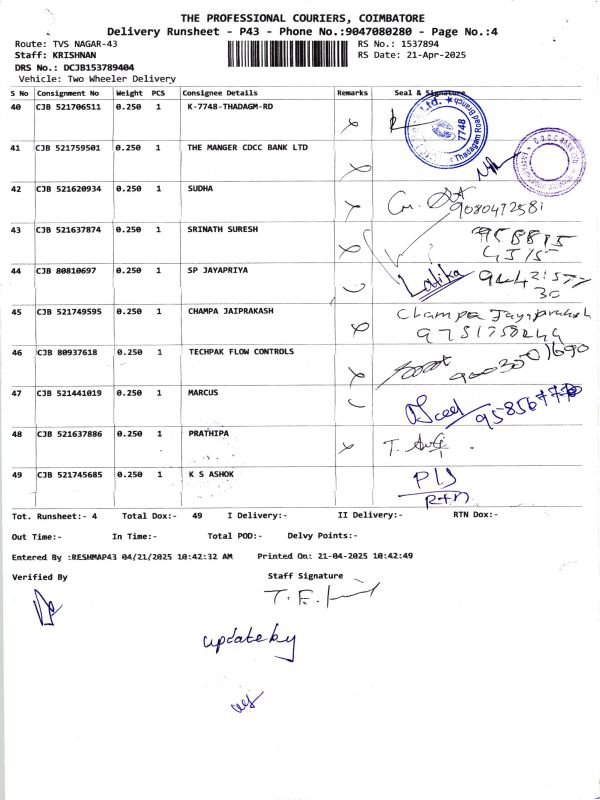 THE PROFESSIONAL COURIERS, COIMBATORE
Delivery Runsheet - P43 - Phone No.:9047080280 - Page No.:4
Route: TVS NAGAR-43 RS No.: 1537894
Staff: KRISHNAN RS Date: 21-Apr-2025
DRS No.: DCJB153789404
Vehicle: Two Wheeler Delivery
S No Consignment No Weight PCS Consignee Details Remarks Seal & Signature
40 CJB 521706511 0.250 1 K-7748-THADAGM-RD
Ltd. Thadagam Road Branch 7748
41 CJB 521759501 0.250 1 THE MANGER CDCC BANK LTD
42 CJB 521620934 0.250 1 SUDHA
9080472581
43 CJB 521637874 0.250 1 SRINATH SURESH
44 CJB 80810697 0.250 1 SP JAYAPRIYA Latika
30
45 CJB 521749595 0.250 1 CHAMPA JAIPRAKASH Champa Jayaprakash
46 CJB 80937618 0.250 1 TECHPAK FLOW CONTROLS
47 CJB 521441019 0.250 1 MARCUS
48 CJB 521637886 0.250 1 PRATHIPA T.
49 CJB 521745685 0.250 1 K S ASHOK P/S
Rtn
Tot. Runsheet:- 4 Total Dox:- 49 I Delivery:- II Delivery:- RTN Dox:-
Out Time:- In Time:- Total POD:- Delvy Points:-
Entered By :RESHMAP43 04/21/2025 10:42:32 AM Printed On: 21-04-2025 10:42:49
Verified By Staff Signature
T.F.
update by